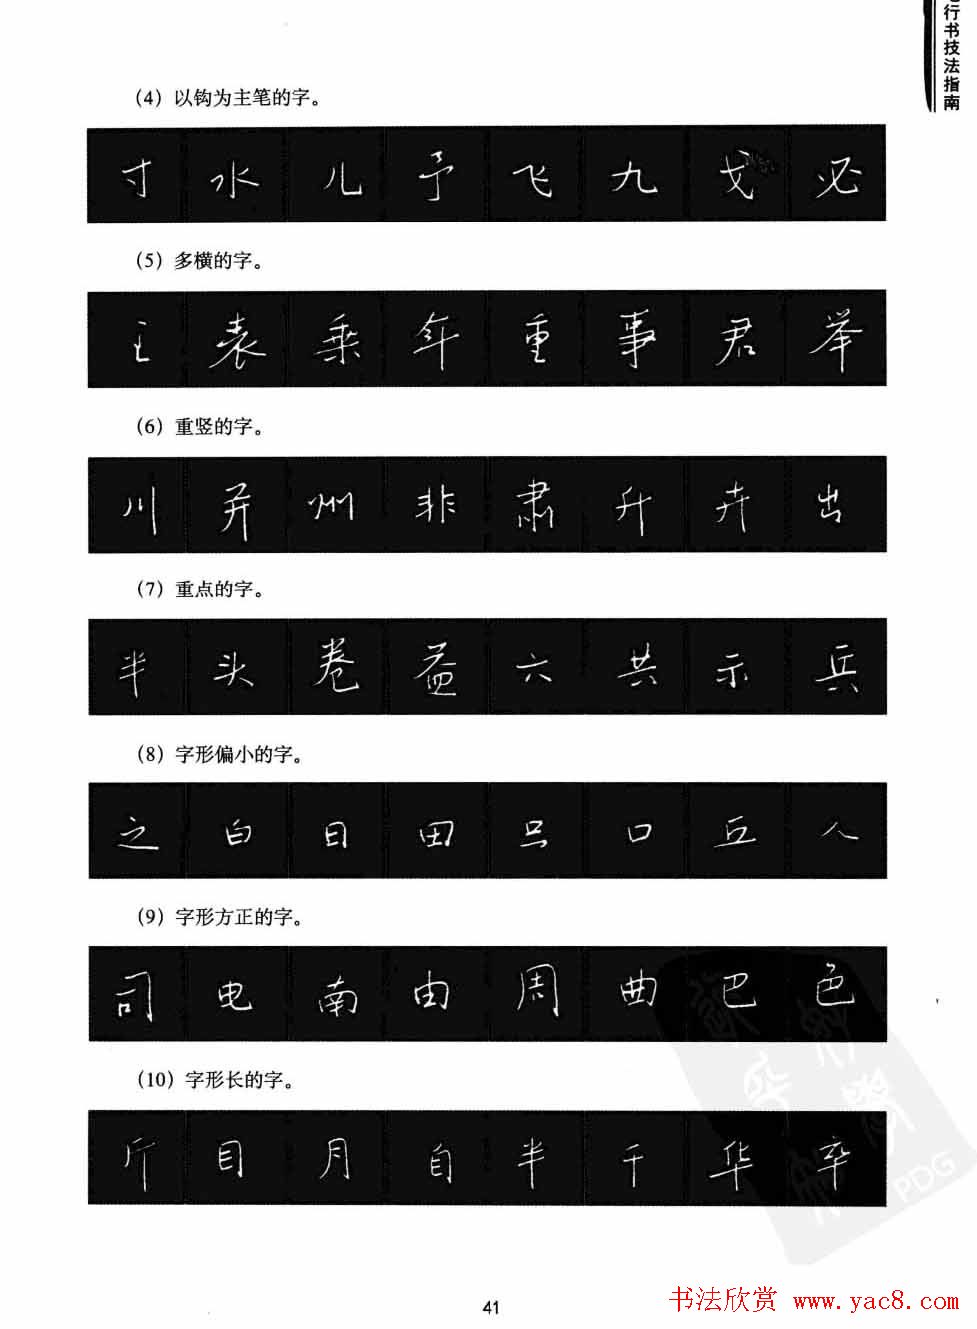 行书技法指南
（4）以钩为主笔的字。
寸水儿予飞九戈必
（5）多横的字。
王表乘年重事君举
（6）重竖的字。
川并州非肃升卉出
（7）重点的字。
半头卷益六共示兵
（8）字形偏小的字。
之白日田只口丘人
（9）字形方正的字。
司电南由周曲巴色
（10）字形长的字。
斤目月自半千华卒
PDG
41
书法欣赏 www.yac8.com